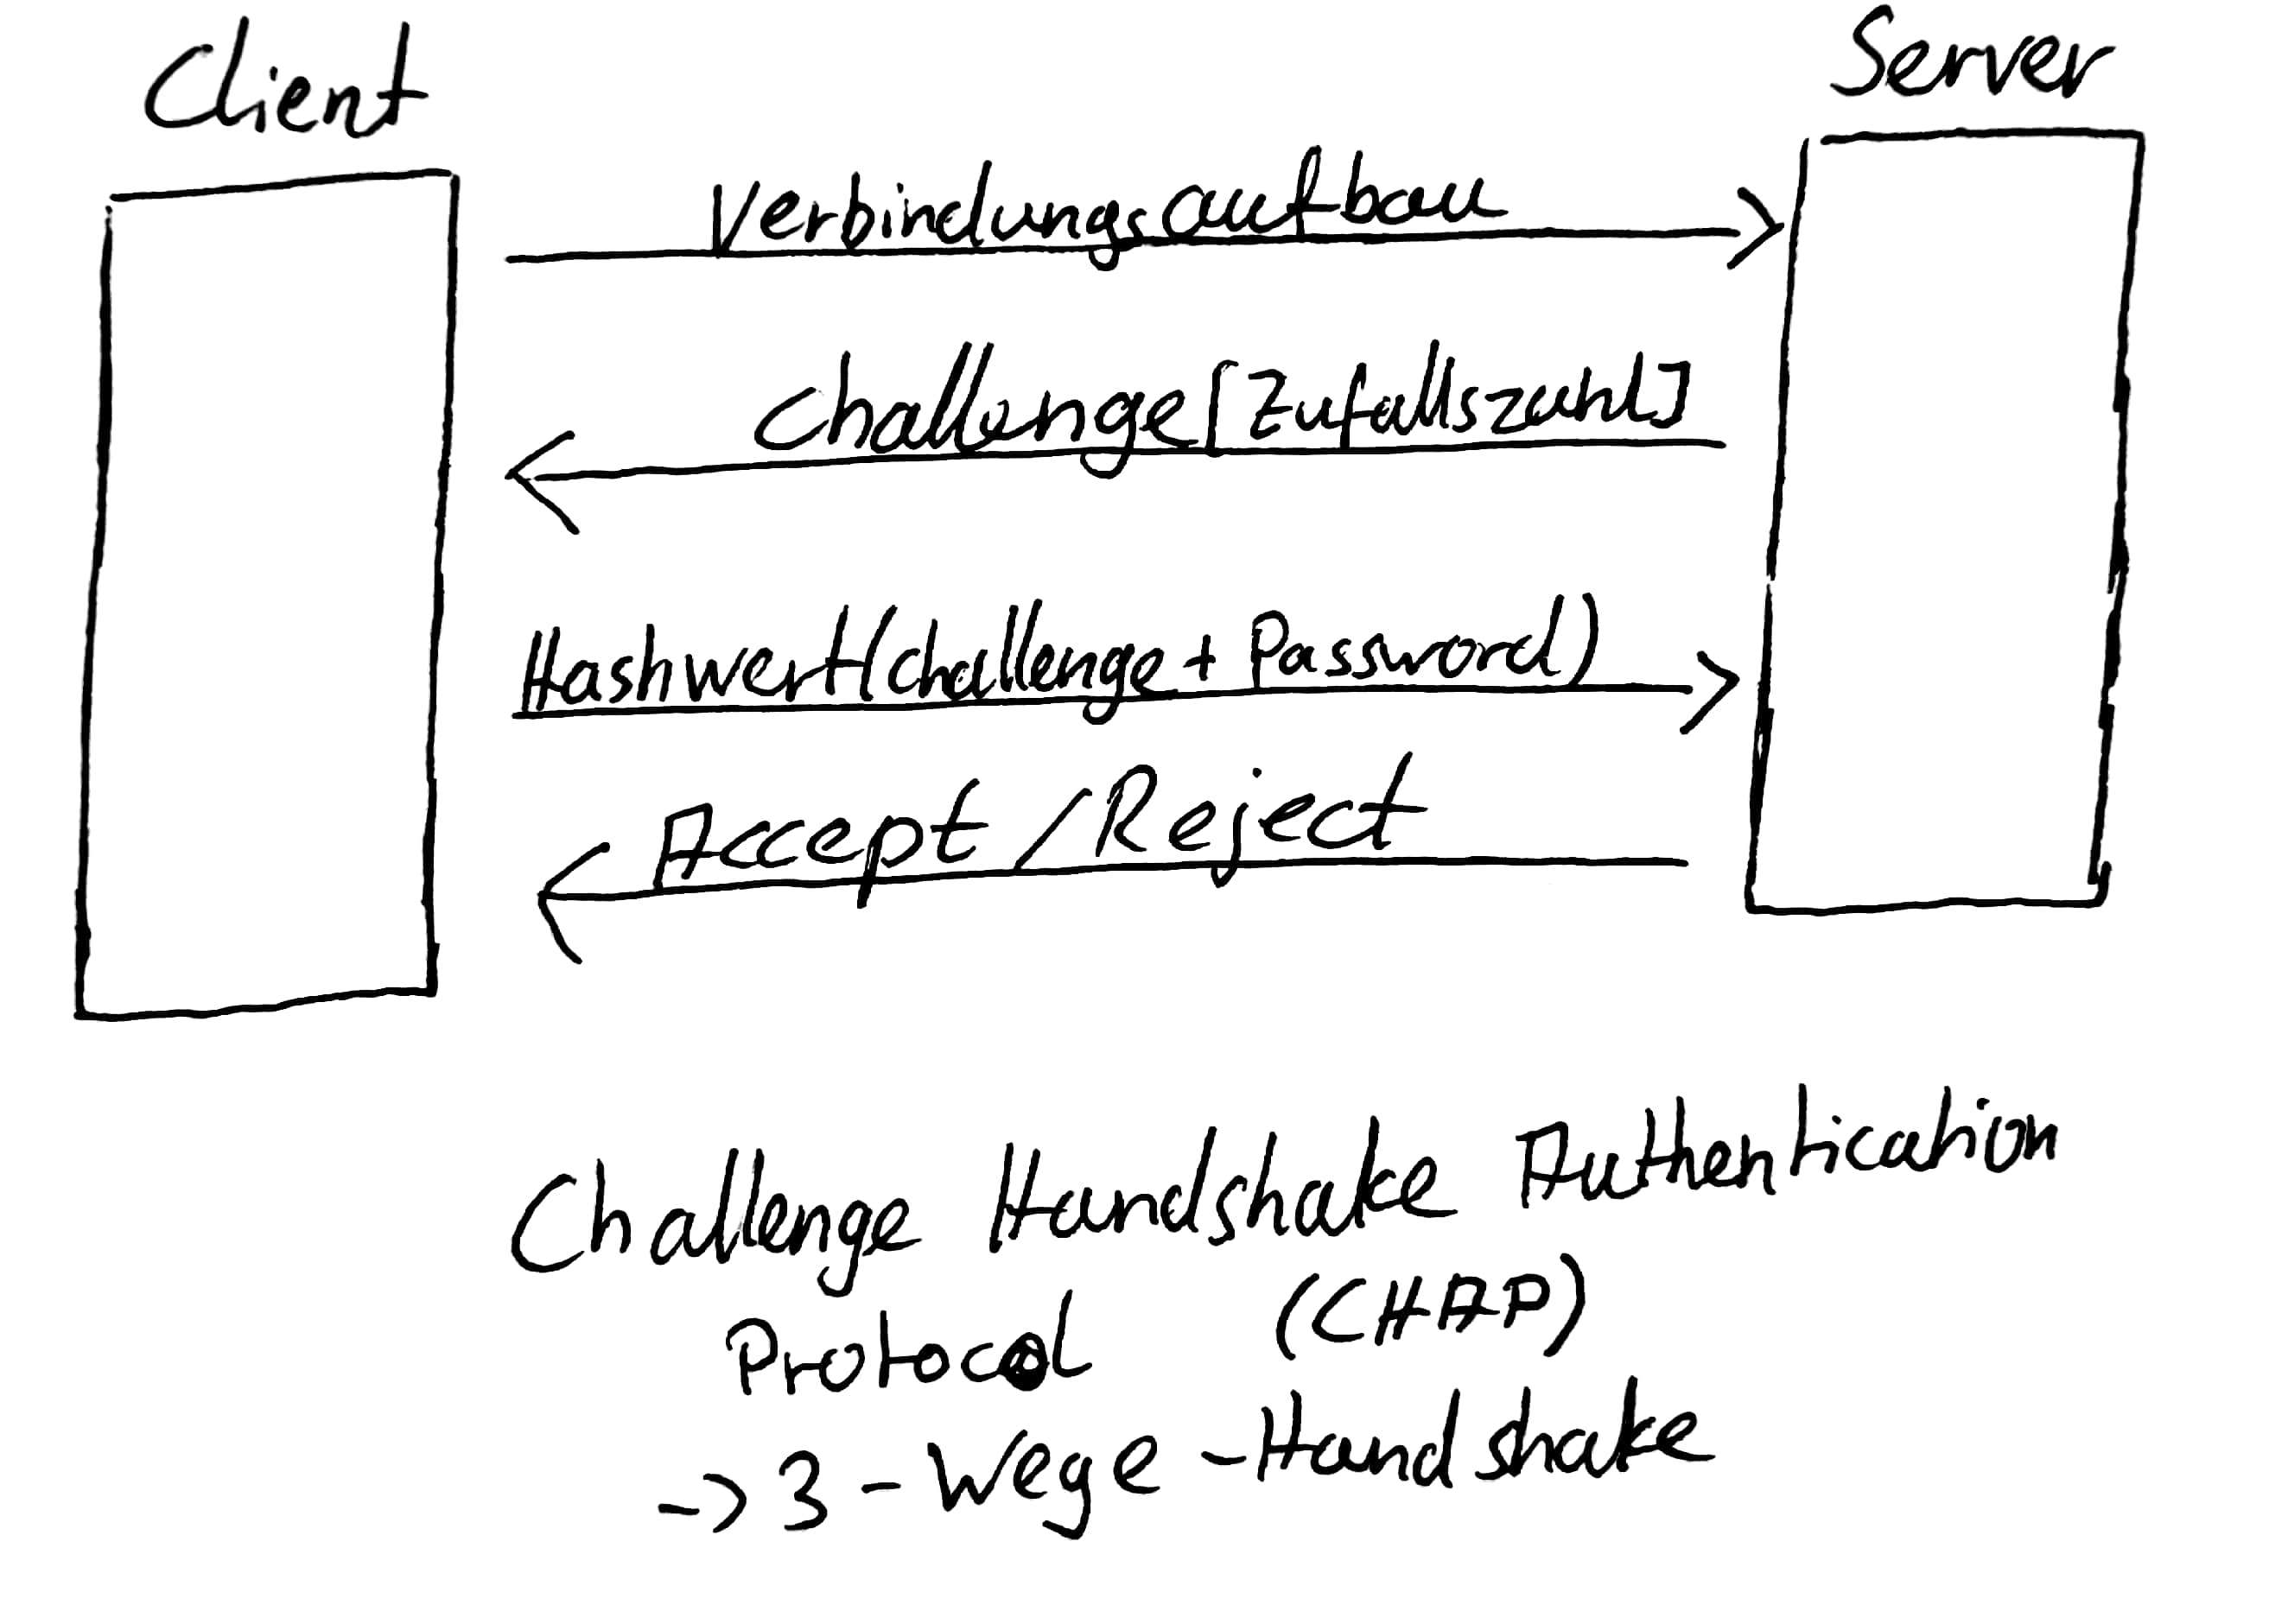 Client
Server
Verbindungsaufbau
challenge[Zufallszahl]
Hashwert(challenge + Password)
Accept/Reject
Challenge Handshake Authentication
Protocol (CHAP)
-> 3-Wege-Handshake